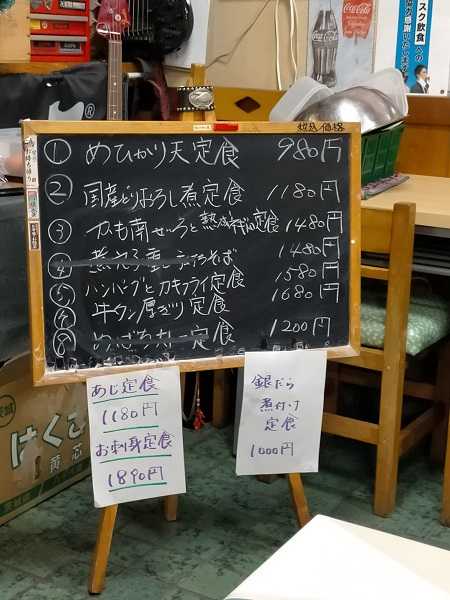 ① めひかり天定食 980円
② 国産とりおろし煮定食 1180円
③ かも南せいろと熟成 定食 1480円
④ 煮穴子重 そば 1480円
⑤ ハンバーグとカキフライ定食 1580円
牛タン厚ぎり定食 1680円
定食 1200円
あじ定食
1180円
お刺身定食
1890円
銀だら
煮付け
定食
1000円
税込価格
Coca-Cola
スク飲食への
感謝いたします
はくさい
黄芯